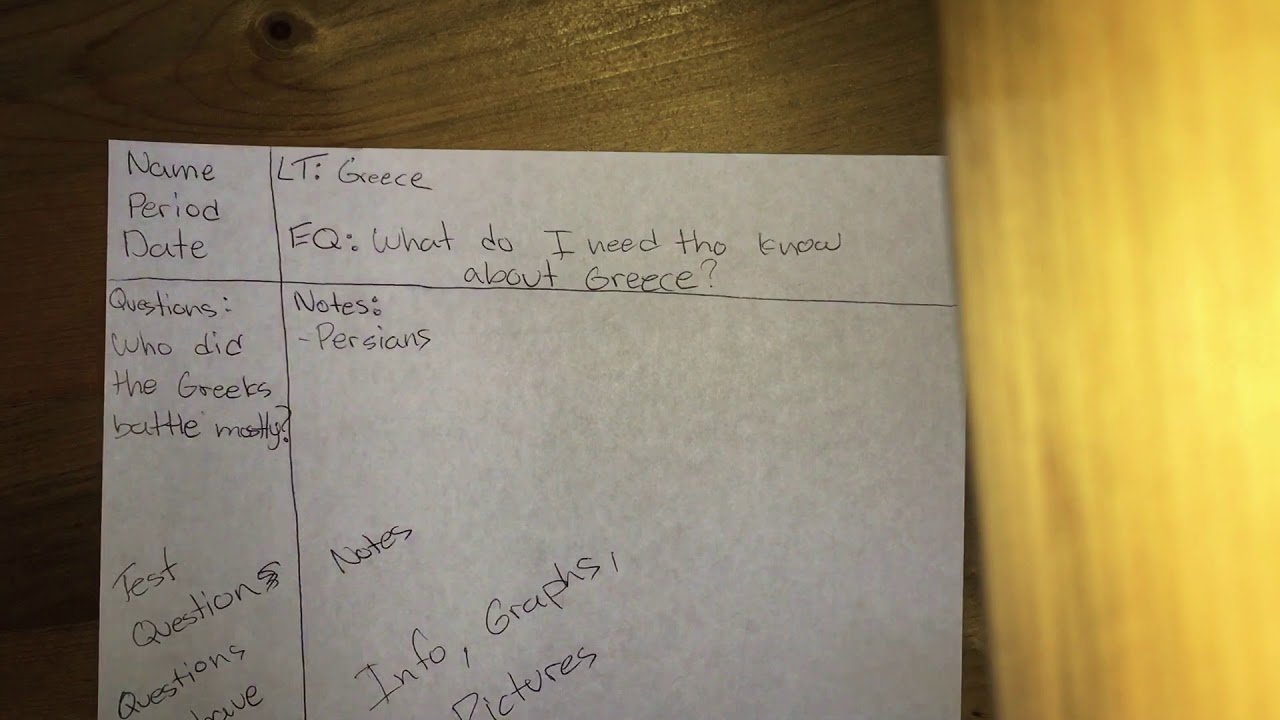 Name
Period
Date
LT: Greece
EQ: What do I need tho know
about Greece?
Questions:
Who did
the Greeks
battle mostly?
Notes:
-Persians
Test
Questions
Questions
have
Notes
Info, Graphs,
Pictures